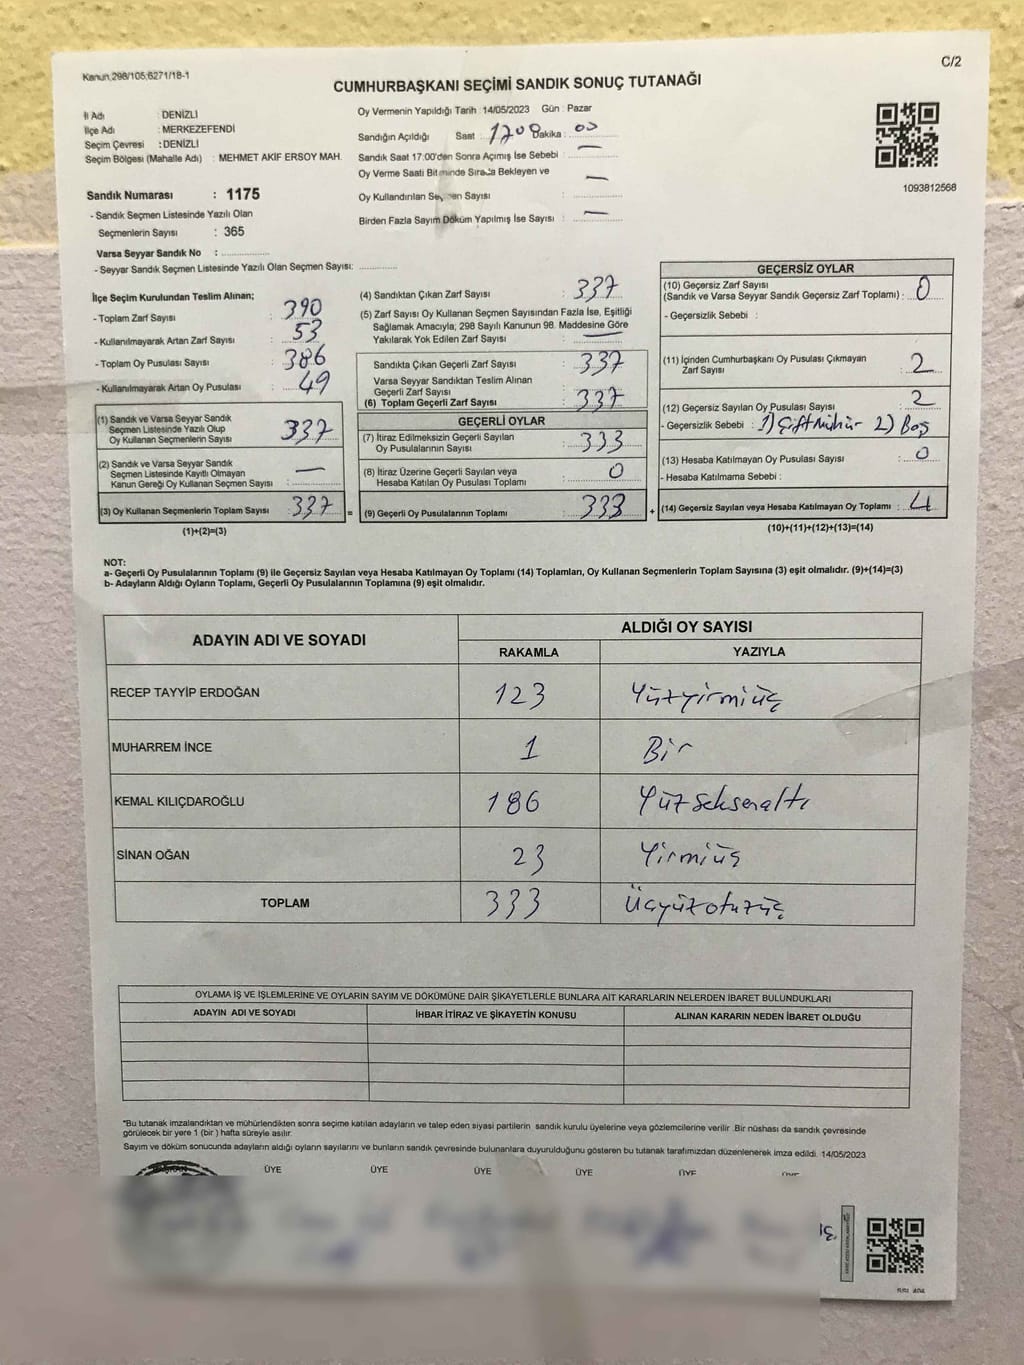 Kanun:298/105;6271/18-1
C/2
CUMHURBAŞKANI SEÇİMİ SANDIK SONUÇ TUTANAĞI
İl Adı : DENİZLİ
İlçe Adı : MERKEZEFENDİ
Seçim Çevresi : DENİZLİ
Seçim Bölgesi (Mahalle Adı) : MEHMET AKİF ERSOY MAH.
Oy Vermenin Yapıldığı Tarih : 14/05/2023 Gün : Pazar
Sandığın Açıldığı Saat : 1700 Dakika : 00
Sandık Saat 17:00'den Sonra Açımış İse Sebebi : —
Oy Verme Saati Bitiminde Sırada Bekleyen ve
Oy Kullandırılan Seçmen Sayısı : —
Birden Fazla Sayım Döküm Yapılmış İse Sayısı : —
1093812568
Sandık Numarası : 1175
- Sandık Seçmen Listesinde Yazılı Olan
Seçmenlerin Sayısı : 365
Varsa Seyyar Sandık No :
- Seyyar Sandık Seçmen Listesinde Yazılı Olan Seçmen Sayısı:
İlçe Seçim Kurulundan Teslim Alınan;
- Toplam Zarf Sayısı : 390
- Kullanılmayarak Artan Zarf Sayısı : 53
- Toplam Oy Pusulası Sayısı : 386
- Kullanılmayarak Artan Oy Pusulası : 49
(1) Sandık ve Varsa Seyyar Sandık
Seçmen Listesinde Yazılı Olup
Oy Kullanan Seçmenlerin Sayısı : 337
(2) Sandık ve Varsa Seyyar Sandık
Seçmen Listesinde Kayıtlı Olmayan
Kanun Gereği Oy Kullanan Seçmen Sayısı : —
(3) Oy Kullanan Seçmenlerin Toplam Sayısı : 337
(1)+(2)=(3)
(4) Sandıktan Çıkan Zarf Sayısı : 337
(5) Zarf Sayısı Oy Kullanan Seçmen Sayısından Fazla İse, Eşitliği
Sağlamak Amacıyla; 298 Sayılı Kanunun 98. Maddesine Göre
Yakılarak Yok Edilen Zarf Sayısı : —
Sandıkta Çıkan Geçerli Zarf Sayısı : 337
Varsa Seyyar Sandıktan Teslim Alınan
Geçerli Zarf Sayısı
(6) Toplam Geçerli Zarf Sayısı : 337
GEÇERLİ OYLAR
(7) İtiraz Edilmeksizin Geçerli Sayılan
Oy Pusulalarının Sayısı : 333
(8) İtiraz Üzerine Geçerli Sayılan veya
Hesaba Katılan Oy Pusulası Toplamı : 0
= (9) Geçerli Oy Pusulalarının Toplamı : 333 +
GEÇERSİZ OYLAR
(10) Geçersiz Zarf Sayısı
(Sandık ve Varsa Seyyar Sandık Geçersiz Zarf Toplamı) : 0
- Geçersizlik Sebebi :
(11) İçinden Cumhurbaşkanı Oy Pusulası Çıkmayan
Zarf Sayısı : 2
(12) Geçersiz Sayılan Oy Pusulası Sayısı : 2
- Geçersizlik Sebebi : 1) Çift Mühür 2) Boş
(13) Hesaba Katılmayan Oy Pusulası Sayısı : 0
- Hesaba Katılmama Sebebi :
(14) Geçersiz Sayılan veya Hesaba Katılmayan Oy Toplamı : 4
(10)+(11)+(12)+(13)=(14)
NOT:
a- Geçerli Oy Pusulalarının Toplamı (9) ile Geçersiz Sayılan veya Hesaba Katılmayan Oy Toplamı (14) Toplamları, Oy Kullanan Seçmenlerin Toplam Sayısına (3) eşit olmalıdır. (9)+(14)=(3)
b- Adayların Aldığı Oyların Toplamı, Geçerli Oy Pusulalarının Toplamına (9) eşit olmalıdır.
ADAYIN ADI VE SOYADI ALDIĞI OY SAYISI
RAKAMLA YAZIYLA
RECEP TAYYİP ERDOĞAN 123 Yüzyirmiüç
MUHARREM İNCE 1 Bir
KEMAL KILIÇDAROĞLU 186 Yüzseksenaltı
SİNAN OĞAN 23 Yirmiüç
TOPLAM 333 Üçyüzotuzüç
OYLAMA İŞ VE İŞLEMLERİNE VE OYLARIN SAYIM VE DÖKÜMÜNE DAİR ŞİKAYETLERLE BUNLARA AİT KARARLARIN NELERDEN İBARET BULUNDUKLARI
ADAYIN ADI VE SOYADI İHBAR İTİRAZ VE ŞİKAYETİN KONUSU ALINAN KARARIN NEDEN İBARET OLDUĞU
"Bu tutanak imzalandıktan ve mühürlendikten sonra seçime katılan adayların ve talep eden siyasi partilerin sandık kurulu üyelerine veya gözlemcilerine verilir .Bir nüshası da sandık çevresinde
görülecek bir yere 1 (bir ) hafta süreyle asılır.
Sayım ve döküm sonucunda adayların aldığı oyların sayılarını ve bunların sandık çevresinde bulunanlara duyurulduğunu gösteren bu tutanak tarafımızdan düzenlenerek imza edildi. 14/05/2023
ÜYE ÜYE ÜYE ÜYE ÜYE